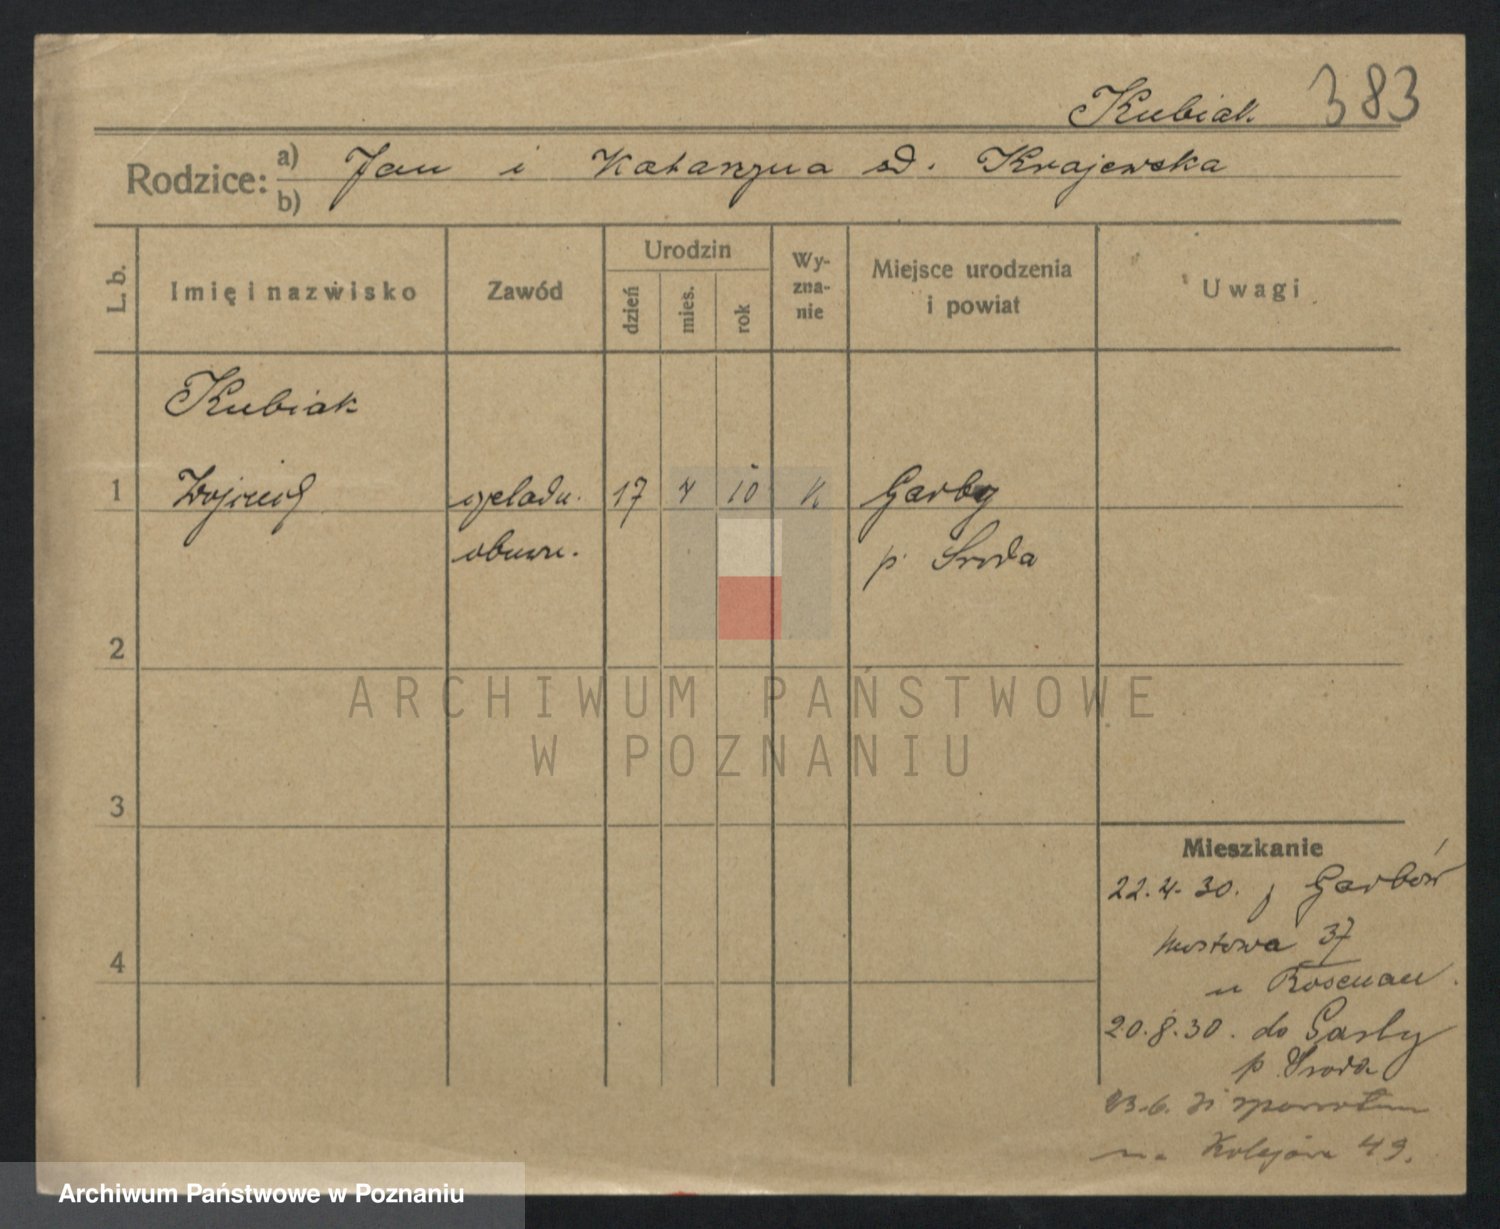 Kubiak 383
Rodzice: a) b) Jan i Katarzyna zd. Krajewska
L. b.
Imię i nazwisko
Zawód
Urodzin
dzień
mies.
rok
Wy-
zna-
nie
Miejsce urodzenia
i powiat
Uwagi
Kubiak
1 Wojciech czeladn. 17 4 10 K Garby
obuwn. p Środa
2
3
4
ARCHIWUM PAŃSTWOWE
W POZNANIU
Mieszkanie
22.4.30. z Garbów
Mostowa 37
u Rosenau.
20.8.30. do Garby
p. Środa
23.6.31 zpowrotem
na Kolejowa 49.
Archiwum Państwowe w Poznaniu